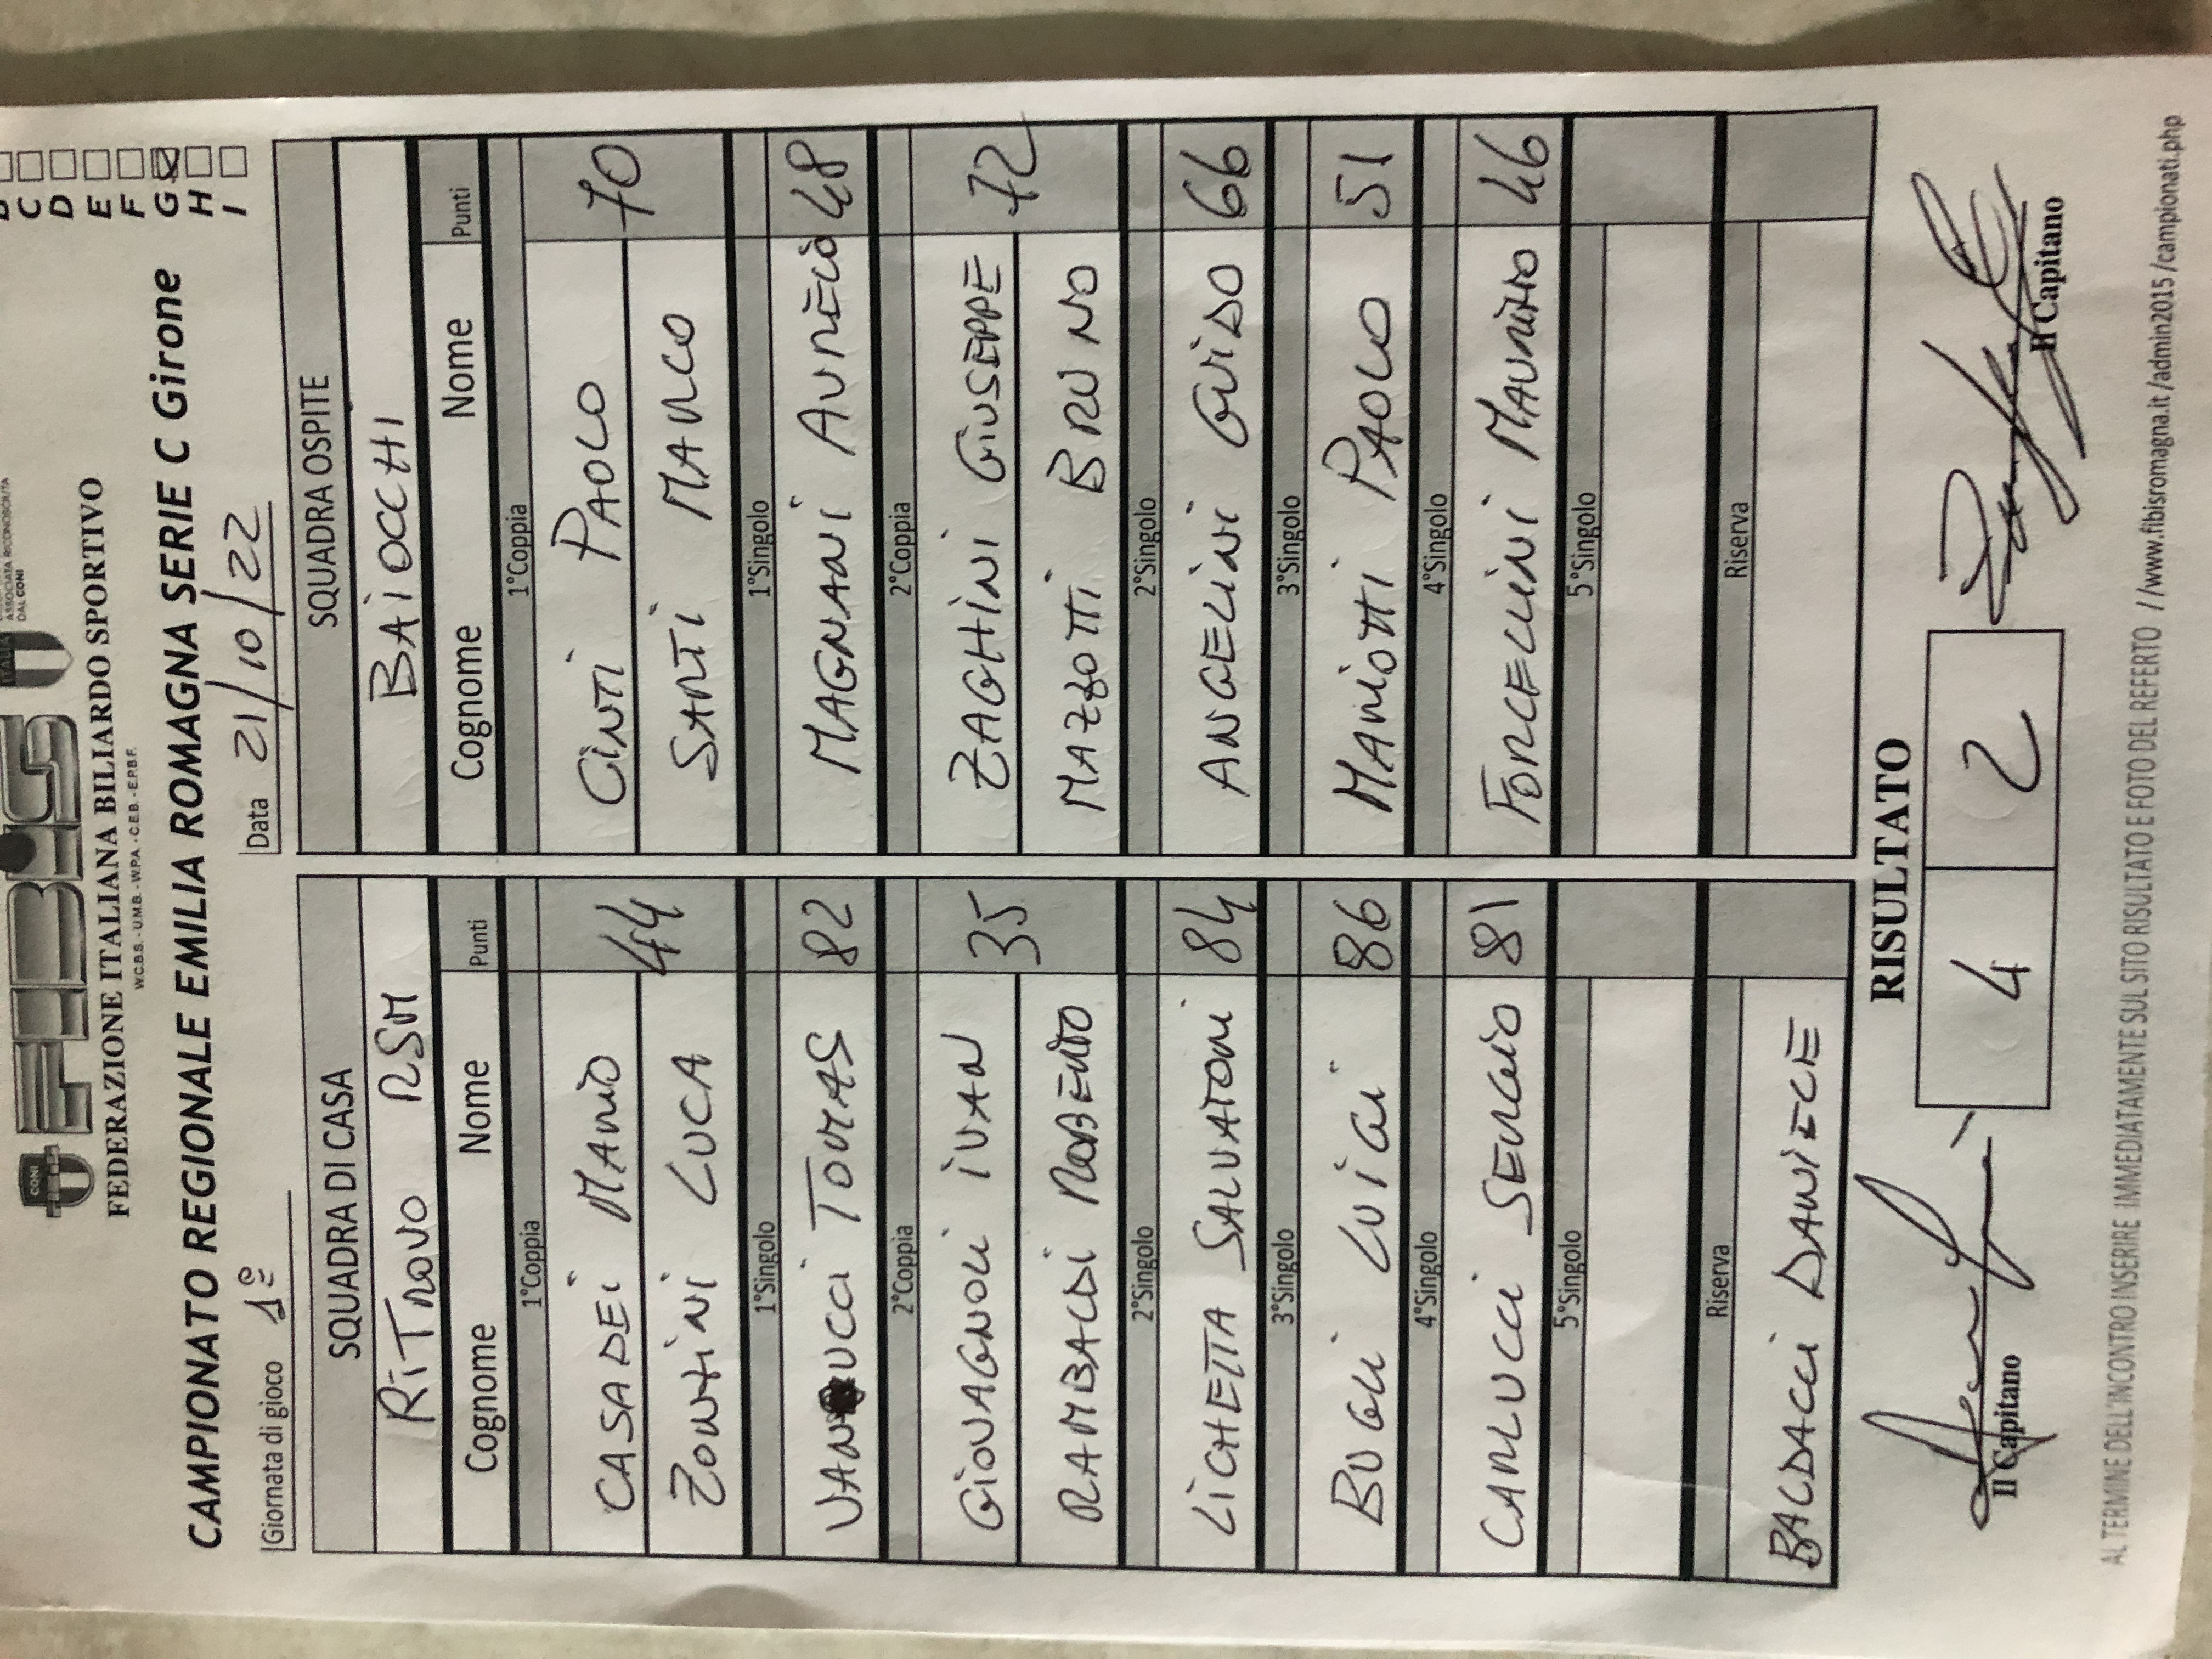 CONI
FIBIS
ASSOCIATA RICONOSCIUTA
DAL CONI
FEDERAZIONE ITALIANA BILIARDO SPORTIVO
W.C.B.S. - U.M.B. - W.P.A. - C.E.B. - E.P.B.F.
C
D
E
F
G
H
I
CAMPIONATO REGIONALE EMILIA ROMAGNA SERIE C Girone
Giornata di gioco 1° Data 21/10/22
SQUADRA DI CASA SQUADRA OSPITE
RiTROVO RSM BAiOCCHI
Cognome Nome Punti Cognome Nome Punti
1°Coppia 1°Coppia
CASADEi MARiO 44 CiNTi PAOLO 70
ZONZiNi LUCA SARTi MARCO
1°Singolo 1°Singolo
VANNUCCi TOMAS 82 MAGNANi AURELiO 48
2°Coppia 2°Coppia
GiOVAGNOLi iVAN 35 ZAGHiNi GiUSEPPE 72
RAMBALDi ROBERTO MAZZOTTi BRUNO
2°Singolo 2°Singolo
LiCHETTA SALVATORi 84 ANGELiNi GUiDO 66
3°Singolo 3°Singolo
BUGLi LUiGi 86 MARiOTTi PAOLO 51
4°Singolo 4°Singolo
CARLUCCi SERGiO 81 FORCELLiNi MAURiZiO 46
5°Singolo 5°Singolo
Riserva Riserva
BALDACCi DANiELE
RISULTATO
4 2
Il Capitano Il Capitano
AL TERMINE DELL'INCONTRO INSERIRE IMMEDIATAMENTE SUL SITO RISULTATO E FOTO DEL REFERTO //www.fibisromagna.it/admin2015/campionati.php